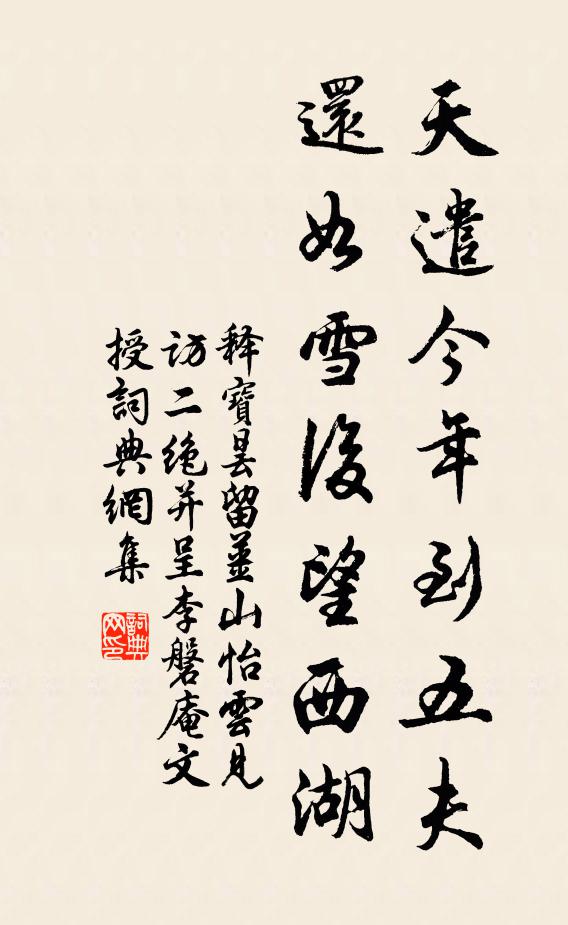 天遣今年到五夫
還如雪後望西湖
释寶曇留薑山怡雲見
訪二绝并呈李磐庵文
授詞典網集
詞典
网印